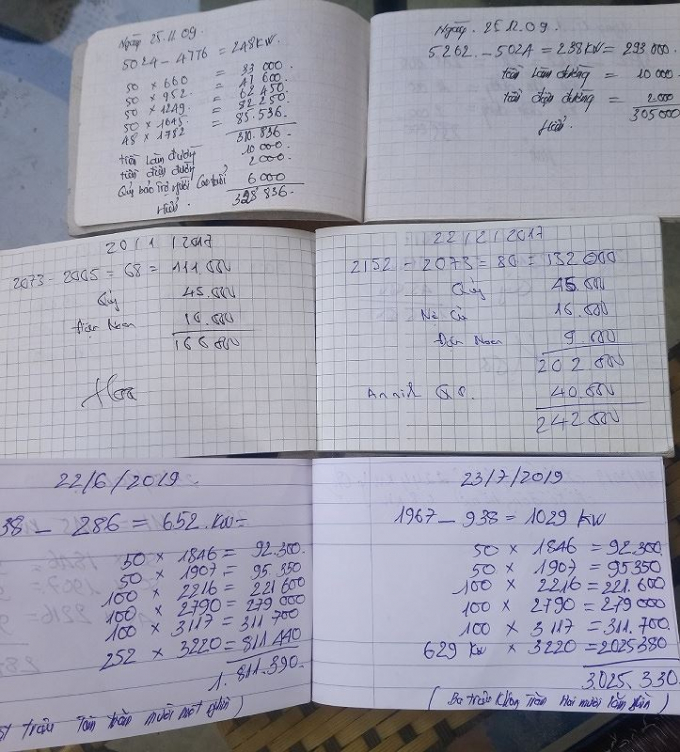 Ngày 25.11.09.
5024 - 4776 = 248KW.
50 × 660 = 33 000.
50 × 952 = 47 600.
50 × 1249 = 62 450.
50 × 1645 = 82 250.
48 × 1782 = 85.536.
310.836.
tiền làm đường 10 000.
tiền điện đường 2 000.
Qũy bảo trợ người cao tuổi 6 000
328 836.
Ngày. 25.12.09.
5262. - 5024 = 238KW = 293 000.
tiền làm đường = 10 000
tiền điện đường = 2.000
305 000
20/1/2017
2073 - 2005 = 68 = 111.000
Qũy 45.000
Điện 10.000
166 000
22/2/2017
2152 - 2073 = 80 = 132 000
Qũy 45.000
16.000
Điện 9.000
202 000
Q8. 40.000
242 000
22/6/2019
38 - 286 = 652.KW=
50 × 1846 = 92.300.
50 × 1907 = 95.350
100 × 2216 = 221 600
100 × 2790 = 279 000
100 × 3117 = 311 700
252 × 3220 = 811 440
1.811.390.
triệu tám trăm mười một ghìn)
23/7/2019
1967 - 938 = 1029 KW
50 × 1846 = 92.300.
50 × 1907 = 95350
100 × 2216 = 221.600
100 × 2790 = 279 000
100 × 3117 = 311.700.
629 KW × 3220 = 2025380
3.025.330
(Ba triệu không trăm Hai mươi lăm ghìn)